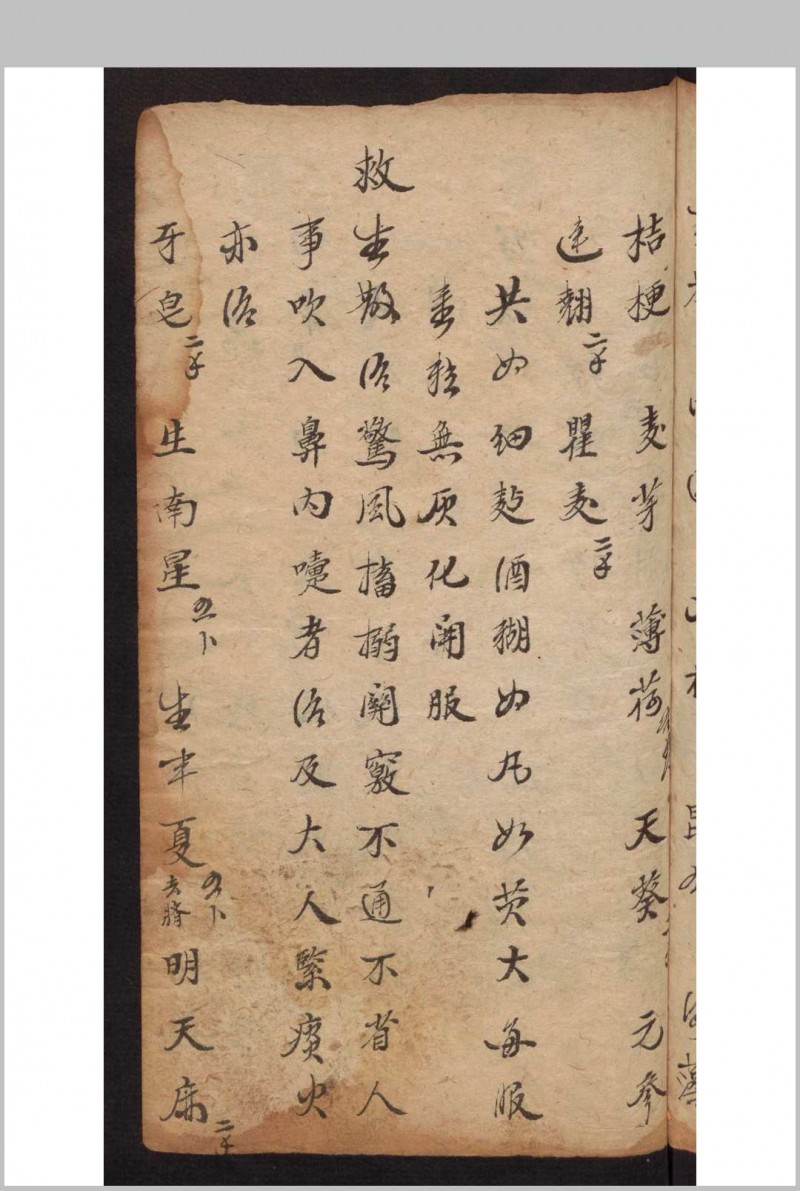 桔梗 麦芽 薄荷 天葵 元参
连翘二子 瞿麦二子
共为细麪酒糊为丸如芡大每服
壹粒無灰化開服
救生散治驚風搐搦関竅不通不省人
事吹入鼻內嚏者治及大人緊痰火
亦治
牙皂二子 生南星 生半夏去臍 明天麻二子